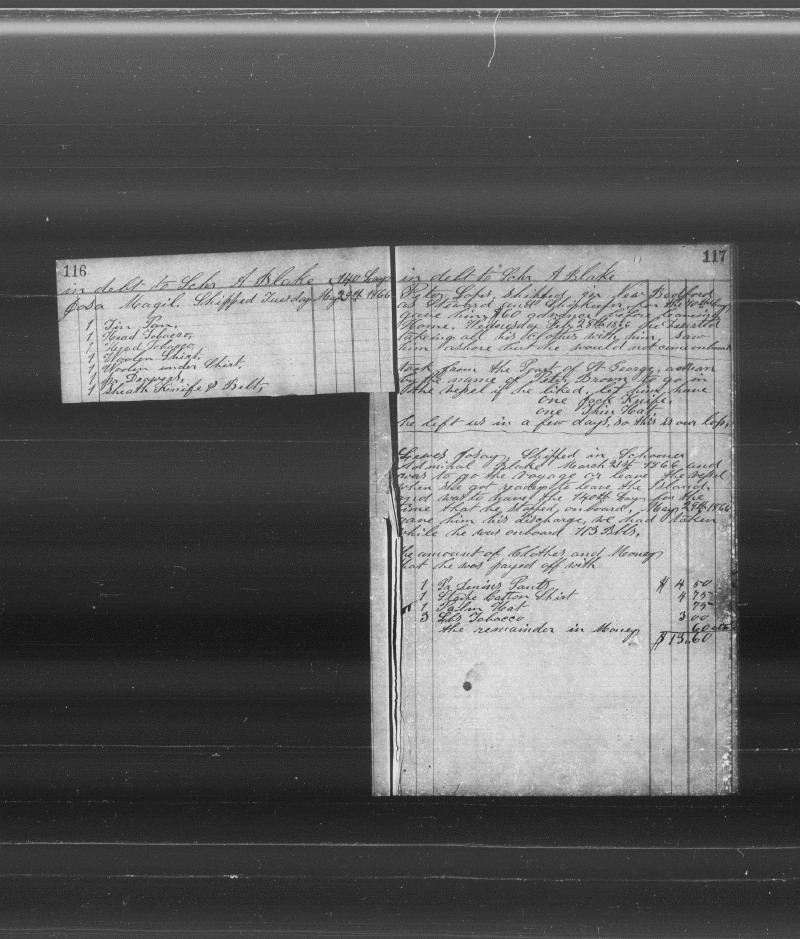 116
in debt to Schr A Blake 140 Lay
Josa Magil. Shipped Tuesday May 29th 1866
1 Tin Pan,
1 Head Tobacco,
1 Head Tobacco,
1 Woolen Shirt,
1 Woolen under Shirt,
1 pr Drawers,
1 Sheath Knife & Belt,
117
in debt to Schr A Blake
Peter Lopes, shipped in New Bedford
as Steward and Shipkeeper, on the
gave him $60 advance before leaving
Home, Wednesday Feb 28th 1866 he deserted
takeing all his clothes with him, I saw
him ashore but he would not come onboard
took from the Port of St George, a man
by the name of Peter Brown to go in
the vessel if he liked, let him have
one Jack Knife,
one Thin Hat,
he left us in a few days, so this is our loss,
Lewes Josay, Shipped in Schooner
Admiral Blake March 21st 1866 and
was to go the voyage or leave the vessel
when she got ready to leave the Island,
and was to have the 140th Lay for the
time that he stayed onboard, May 29th 1866
gave him his discharge, we had taken
while he was onboard 113 Bbls,
the amount of Clothes and Money
that he was payed off with
1 Pr Pants $ 4 50
1 Stripe Cotton Shirt 4 75
1 Palm Hat 75
3 Lbs Tobacco 3 00
the remainder in Money 60 cts
$ 13.60